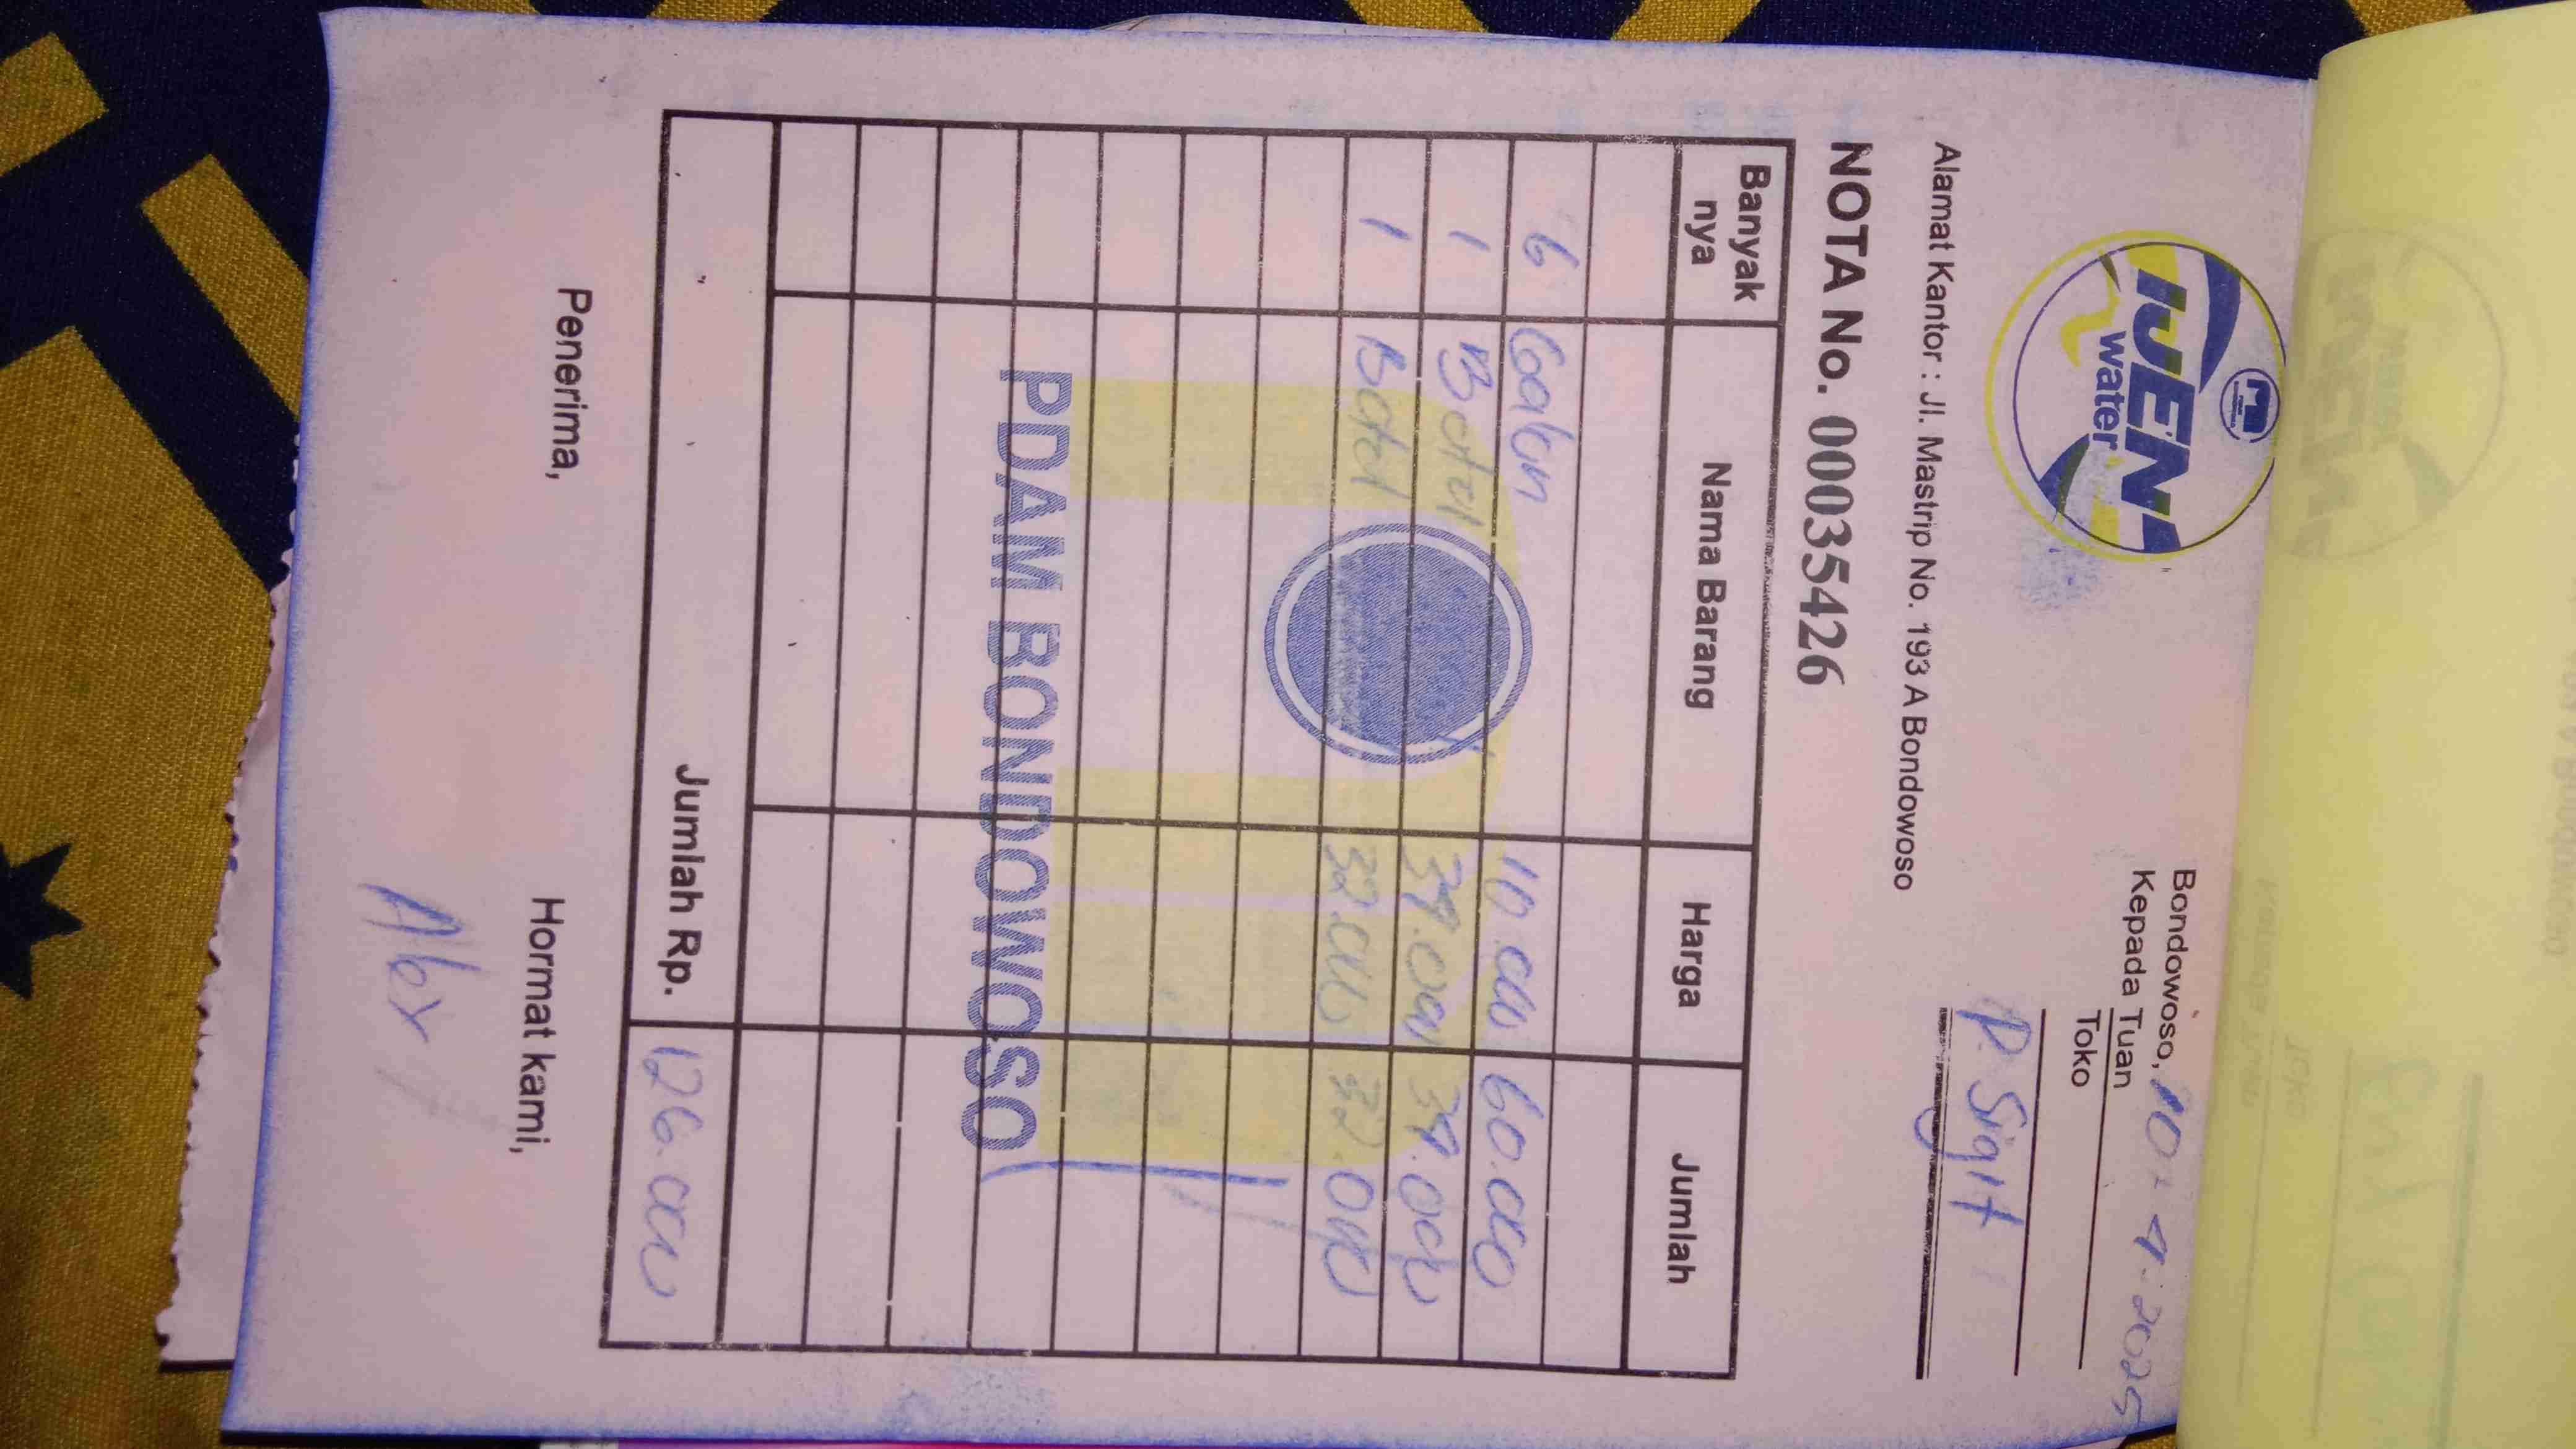 IJEN
water
Bondowoso, 10 - 4 - 2025
Kepada Tuan
Toko
P. Sigit
Alamat Kantor : Jl. Mastrip No. 193 A Bondowoso
NOTA No. 00035426
Banyak nya Nama Barang Harga Jumlah
6 Galon 10.000 60.000
1 Botol 34.000 34.000
1 Botol 32.000 32.000
PDAM BONDOWOSO
Jumlah Rp. 126.000
Penerima, Hormat kami,